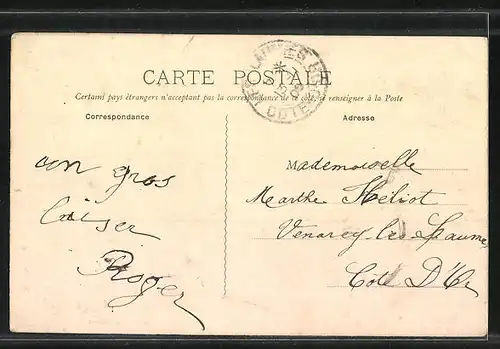 CARTE POSTALE
Certains pays étrangers n'acceptant pas la correspondance de ce côté, se renseigner à la Poste
Correspondance
Adresse
un gros
baiser
Roger
Mademoiselle
Marthe Héliot
Venarey-les-Laumes
Côte D'Or